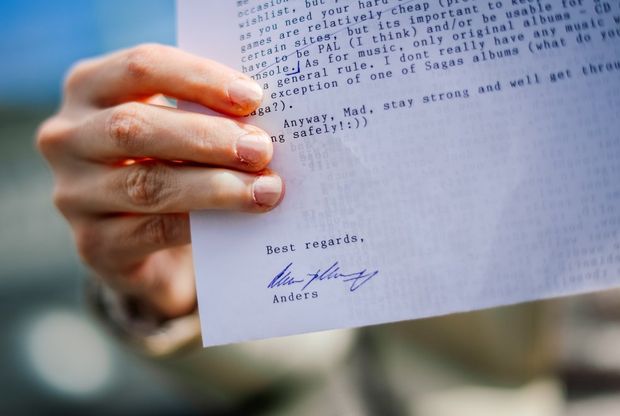 occasion, but p
wishlist,
as you need your hard
games are relatively cheap
certain sites, but its important to keep
have to be PAL (I think) and/or be usable for
console. As for music, only original albums - CD
a general rule. I dont really have any music w
exception of one of Sagas albums (what do you
aga?).
Anyway, Mad, stay strong and well get throu
ng safely!:))
Best regards,
Anders